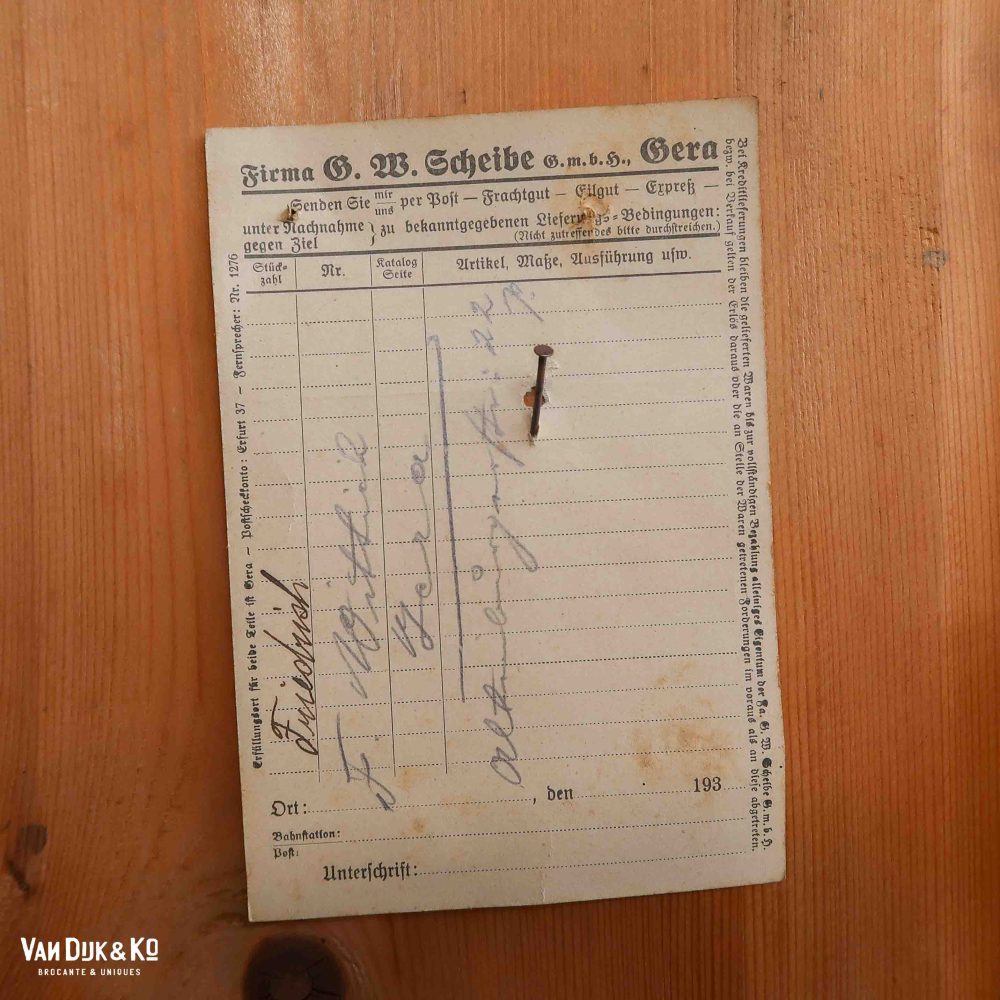 Firma G. W. Scheibe G.m.b.H., Gera
Senden Sie mir uns per Post — Frachtgut — Eilgut — Expreß —
unter Nachnahme
gegen Ziel } zu bekanntgegebenen Lieferungs-Bedingungen:
(Nicht zutreffendes bitte durchstreichen.)
Stückzahl Nr. Katalog Seite Artikel, Maße, Ausführung usw.
Ort: , den 193
Bahnstation:
Post:
Unterschrift:
Erfüllungsort für beide Teile ist Gera — Postscheckkonto: Erfurt 37 — Fernsprecher: Nr. 1276
Bei Kreditlieferungen bleiben die gelieferten Waren bis zur vollständigen Bezahlung alleiniges Eigentum der Fa. G. W. Scheibe G.m.b.H.
bezw. bei Verkauf gelten der Erlös daraus oder die an Stelle der Waren getretenen Forderungen im voraus als an diese abgetreten.
Friedrich
F Wittich
Gera
22
VAN DIJK & KO
BROCANTE & UNIQUES